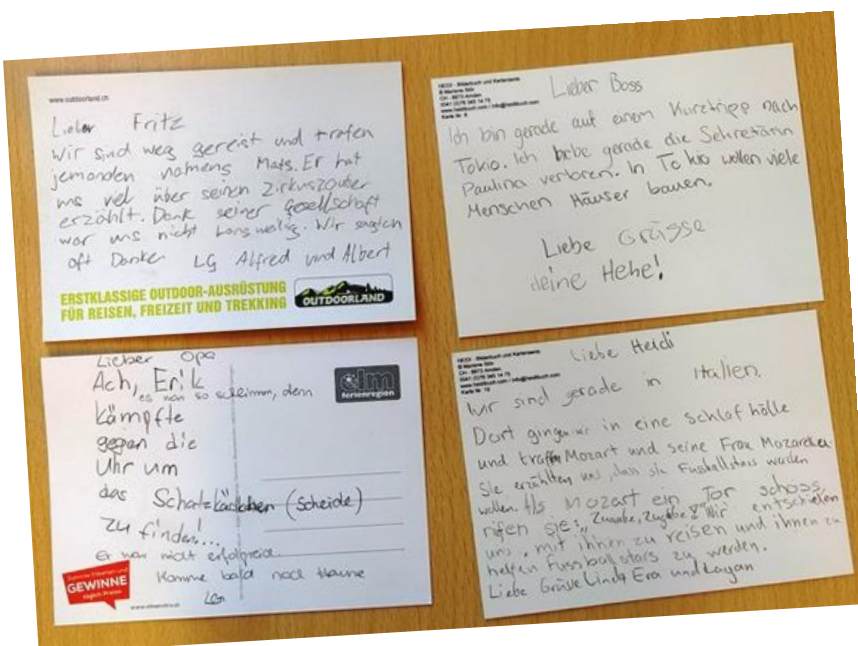 www.outdoorland.ch
Lieber Fritz
Wir sind weg gereist und trafen
jemanden namens Mats. Er hat
uns viel über seinen Zirkuszouber
erzählt. Dank seiner Gesellschaft
war uns nicht langweilig. Wir sagten
oft Danke. LG Alfred und Albert
ERSTKLASSIGE OUTDOOR-AUSRÜSTUNG
FÜR REISEN, FREIZEIT UND TREKKING
OUTDOORLAND
HEIDI - Bilderbuch und Kartenserie
CH - 8873 Amden
Lieber Boss
Ich bin gerade auf einem Kurztripp nach
Tokio. Ich habe gerade die Sekretärin
Paulina verloren. In Tokio wollen viele
Menschen Häuser bauen.
Liebe Grüsse
deine Hehe!
Lieber Opa
Ach, Erik
es war so schlimm, denn
kämpfte
gegen die
Uhr um
das Schatzkästchen (Scheide)
zu finden!...
Er war nicht erfolgreich.
Komme bald nach Hause
LG
elm
ferienregion
GEWINNE
HEIDI - Bilderbuch und Kartenserie
CH - 8873 Amden
Liebe Heidi
Wir sind gerade in Italien.
Dort gingen wir in eine schlafhölle
und traffen Mozart und seine Frau
Sie erzählten uns, dass sie Fussballstars werden
wollen. Als Mozart ein Tor schoss,
riefen sie: „Zugabe, Zugabe!" Wir entschieden
uns, mit ihnen zu reisen und ihnen zu
helfen Fussballstars zu werden.
Liebe Grüsse Linda Era und Layan